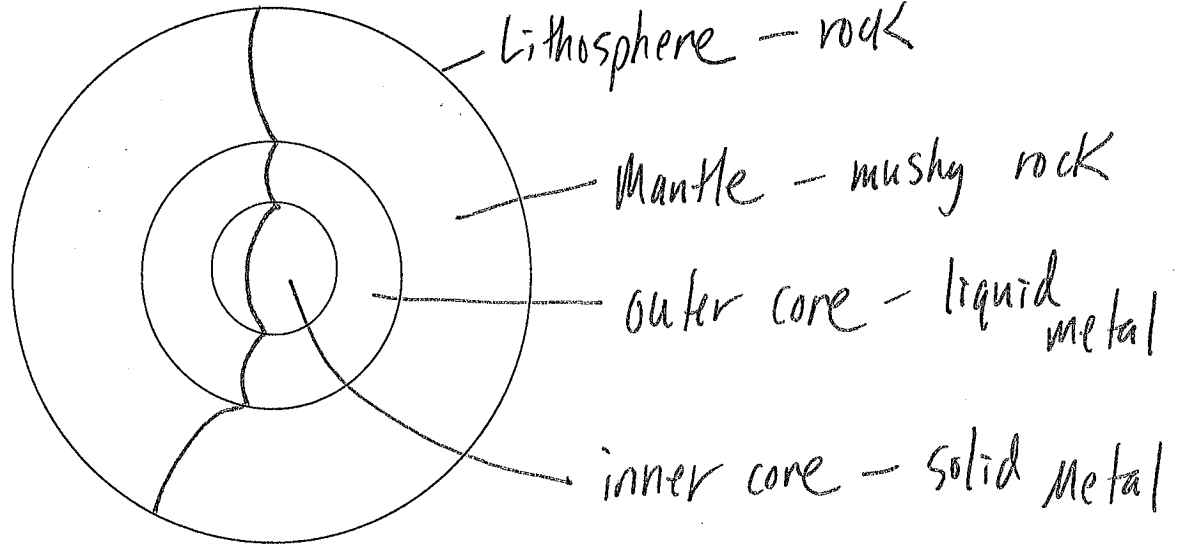 Lithosphere - rock
Mantle - mushy rock
outer core - liquid
metal
inner core - solid metal